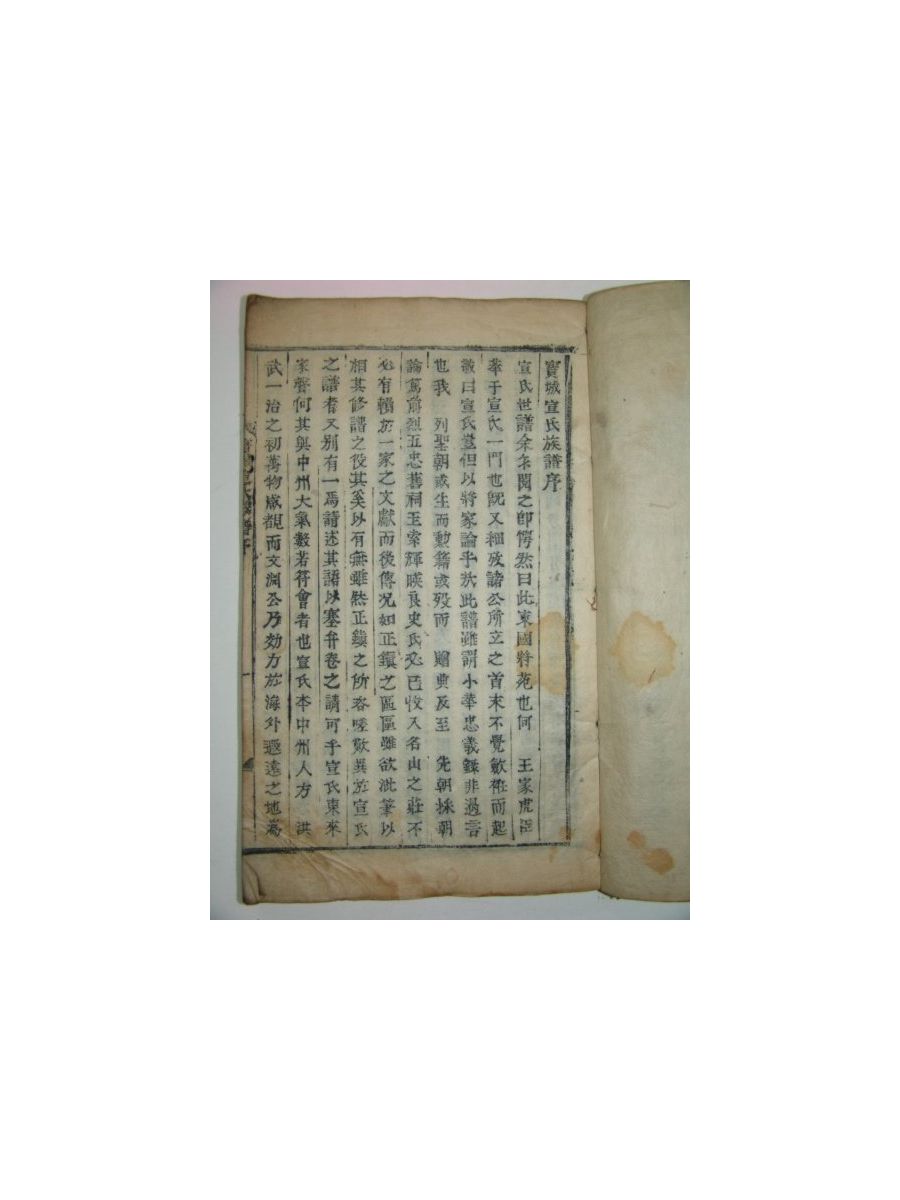 寶城宣氏族譜序
宣氏世譜余多閱之卽愕然曰此東國將苑也何 王家虎臣
萃于宣氏一門也旣又細攷諸公所立之首末不覺歛袵而起
敬曰宣氏豈但以將家論乎於此譜雖謂小華忠義錄非過言
也我 列聖朝或生而勳籍或歿而 贈典及至 先朝採朝
論篤前烈五忠舊祠玉索輝暎良史氏必已收入名山之莊不
必有賴於一家之文獻而後傳况如正鎭之區區雖欲泚筆以
相其修譜之役其奚以有無雖然正鎭之所咨嗟歎異於宣氏
之譜者又別有一焉請述其語以塞弁卷之請可乎宣氏東來
家聲何其與中州大氣數若符會者也宣氏本中州人方 洪
武一治之初萬物咸覩而文淵公乃効力於海外遐遠之地爲